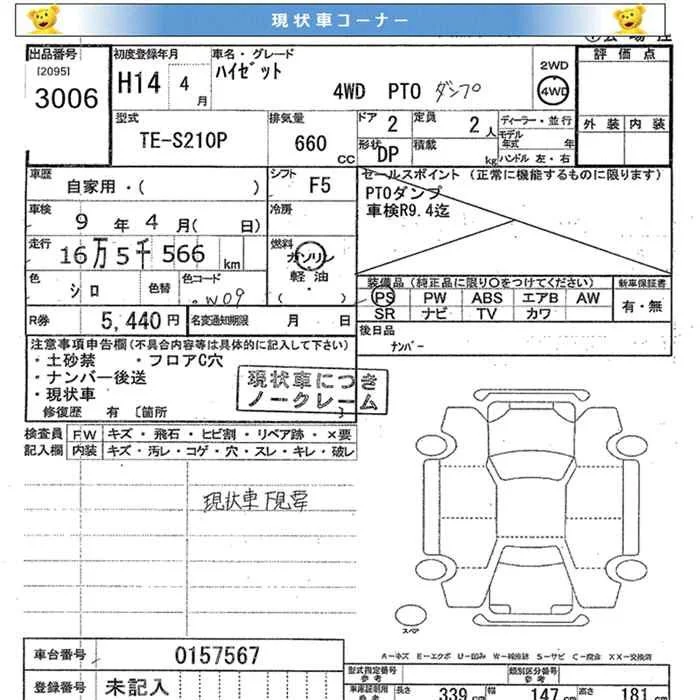 現状車コーナー
出品番号 初度登録年月 車名・グレード 2WD 評価点
[2095] ハイゼット
3006 H14 4月 4WD PTO ダンプ 4WD
型式 排気量 ドア 2 定員 2人 ディーラー・並行 外装 内装
TE-S210P 660 CC 形状 DP 積載 kg モデル年式 年
ハンドル 左・右
車歴 シフト セールスポイント (正常に機能するものに限ります)
自家用・( ) F5 PTOダンプ
車検 9年4月( 日) 冷房 車検R9.4迄
走行 16万5千566km 燃料 ガソリン
軽油
・( )
色 シロ 色替 色コード W09
装備品 (純正品に限り○をつけてください) 新車保証書
PS PW ABS エアB AW 有・無
SR ナビ TV カワ
R券 5,440円 名変通知期限 月 日 後日品
ナンバー
注意事項申告欄(不具合内容等は具体的に記入して下さい)
・土砂禁 ・フロアC穴
・ナンバー後送
・現状車
現状車につき
ノークレーム
修復歴 有 〔箇所 〕
検査員 FW キズ・飛石・ヒビ割・リペア跡・×要
記入欄 内装 キズ・汚レ・コゲ・穴・スレ・キレ・破レ
現状車下見要
スペア
A－キズ E－エクボ U－凹み W－補修跡 S－サビ C－腐食 XX－交換済
車台番号 0157567
登録番号 未記入
型式指定番号 参考 類別区分番号 参考
車庫証明用 参考 長さ 339cm 幅 147cm 高さ 181cm